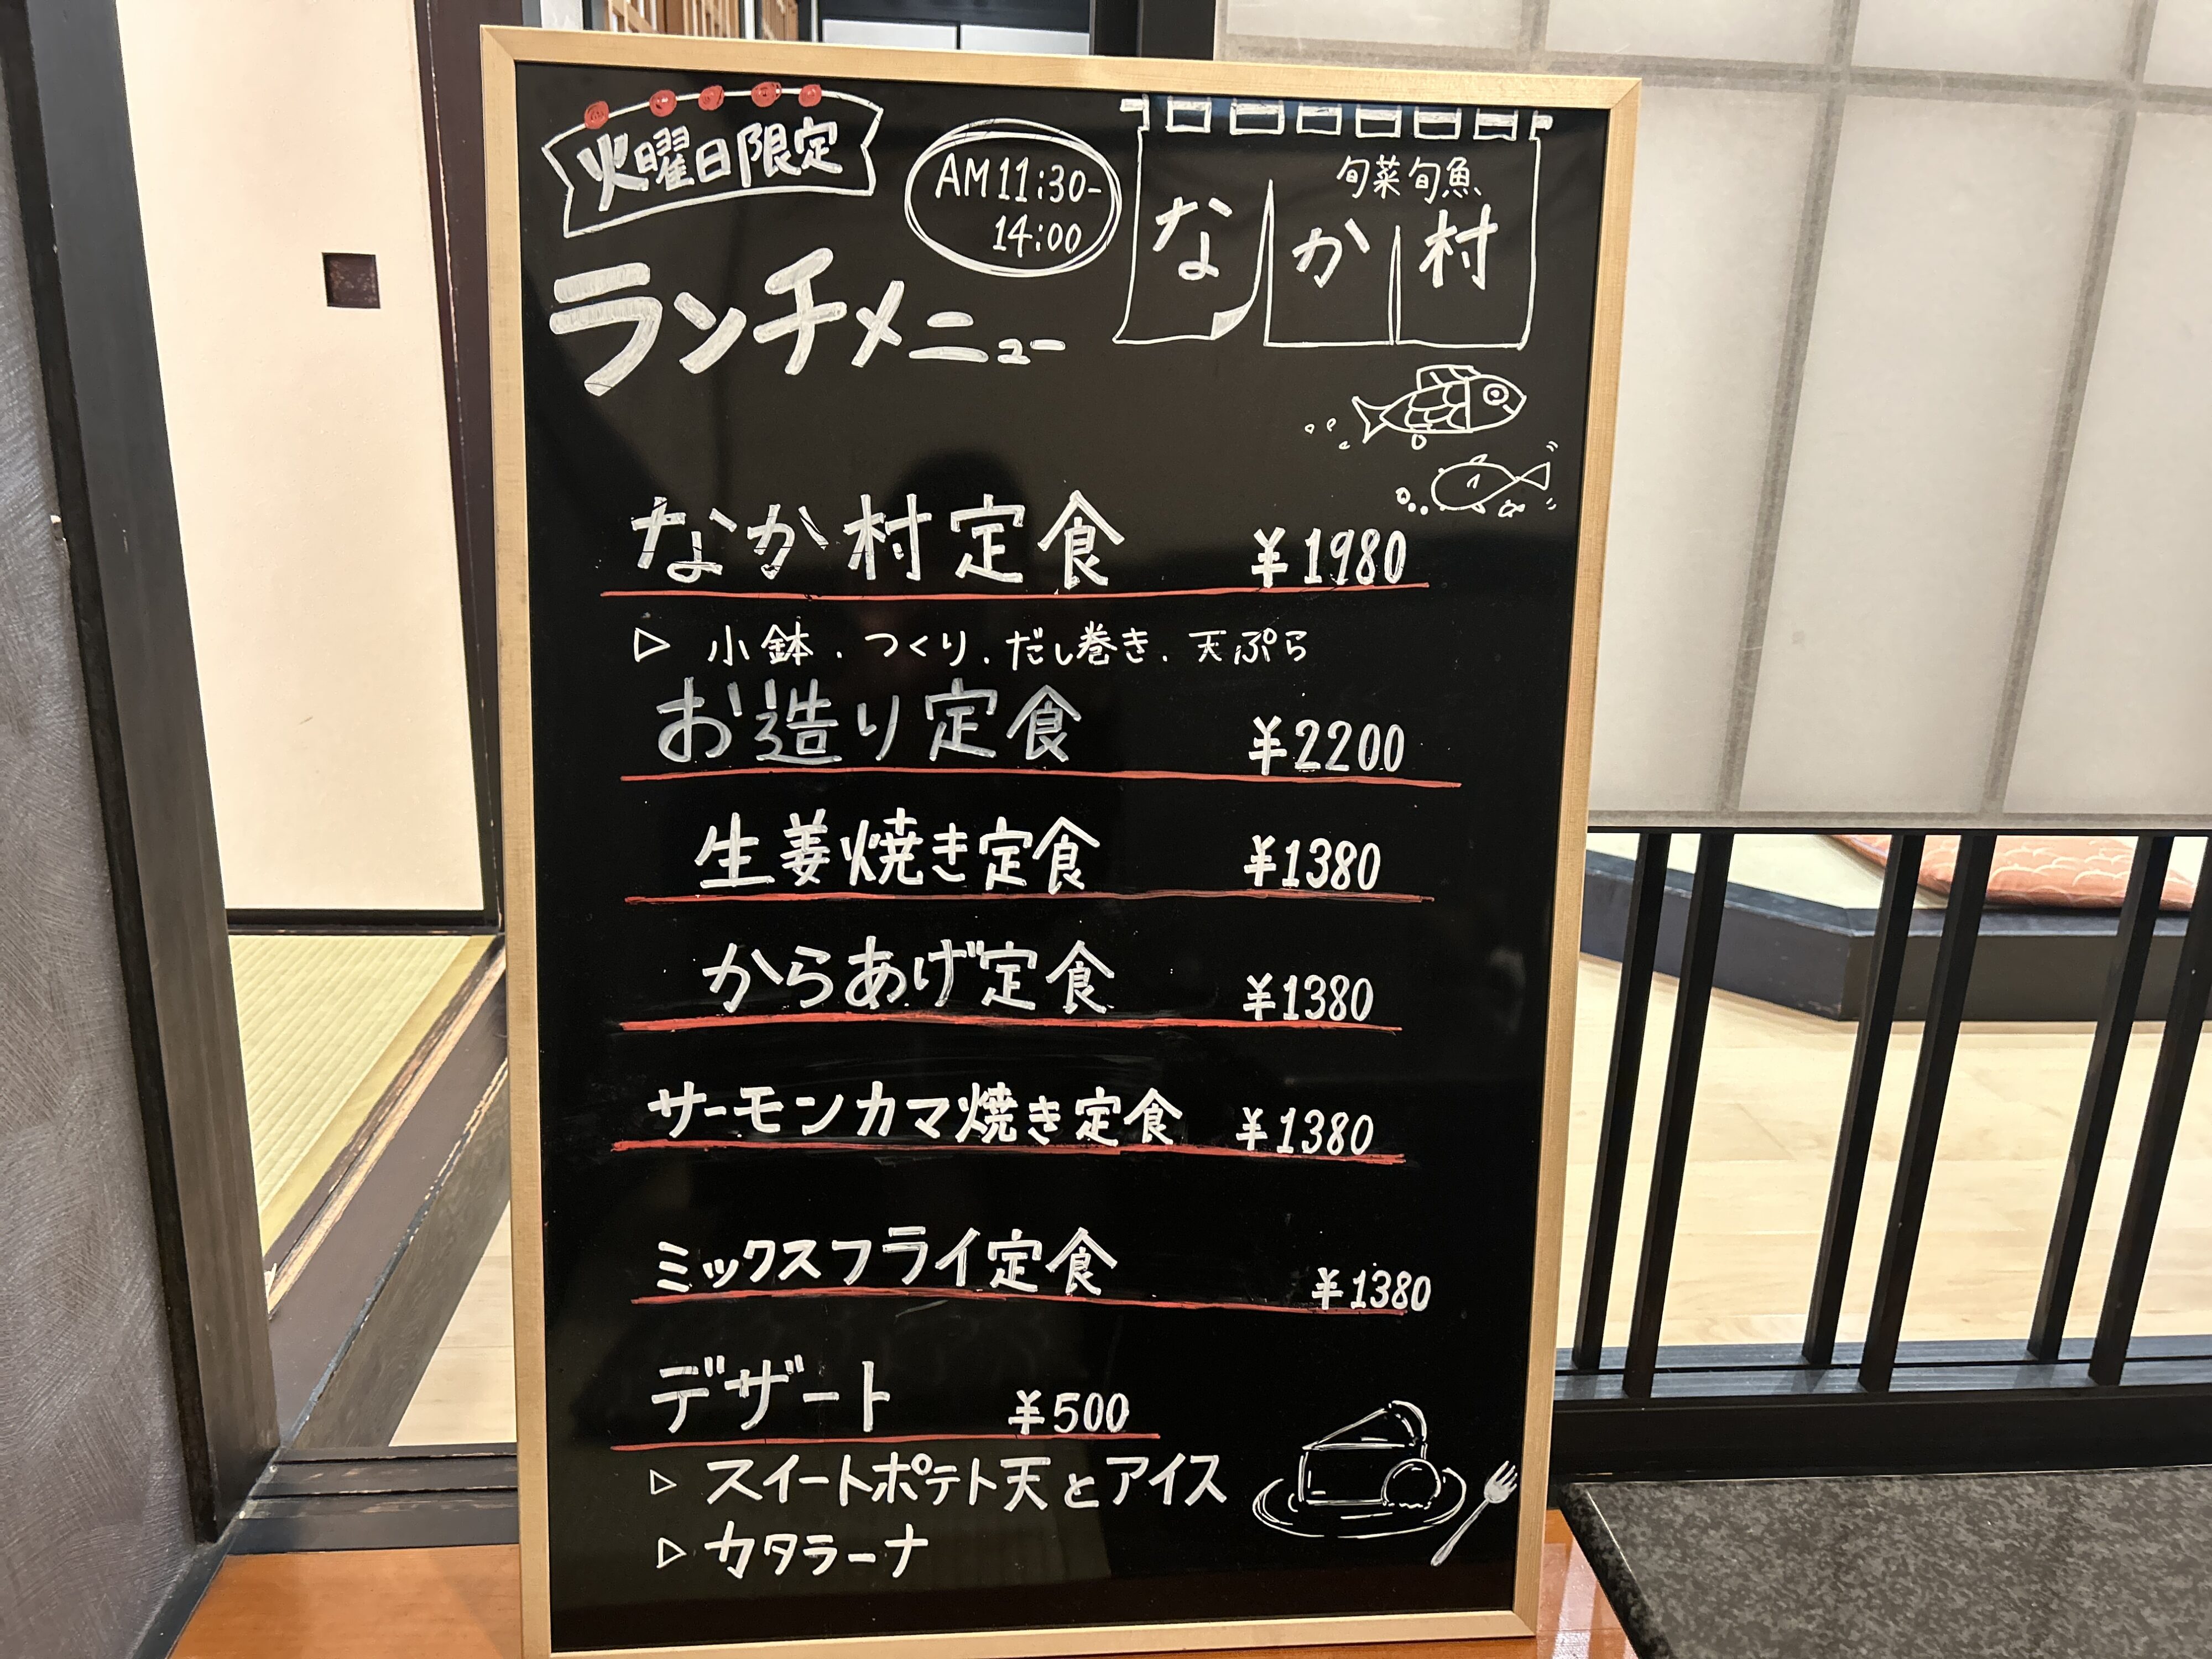 火曜日限定
AM11:30-
14:00
旬菜旬魚
なか村
ランチメニュー
なか村定食 ¥1980
▷ 小鉢.つくり.だし巻き.天ぷら
お造り定食 ¥2200
生姜焼き定食 ¥1380
からあげ定食 ¥1380
サーモンカマ焼き定食 ¥1380
ミックスフライ定食 ¥1380
デザート ¥500
▷ スイートポテト天とアイス
▷ カタラーナ